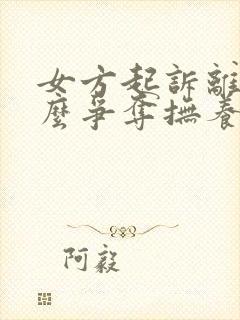 女方起訴離
麼爭奪撫養
阿毅